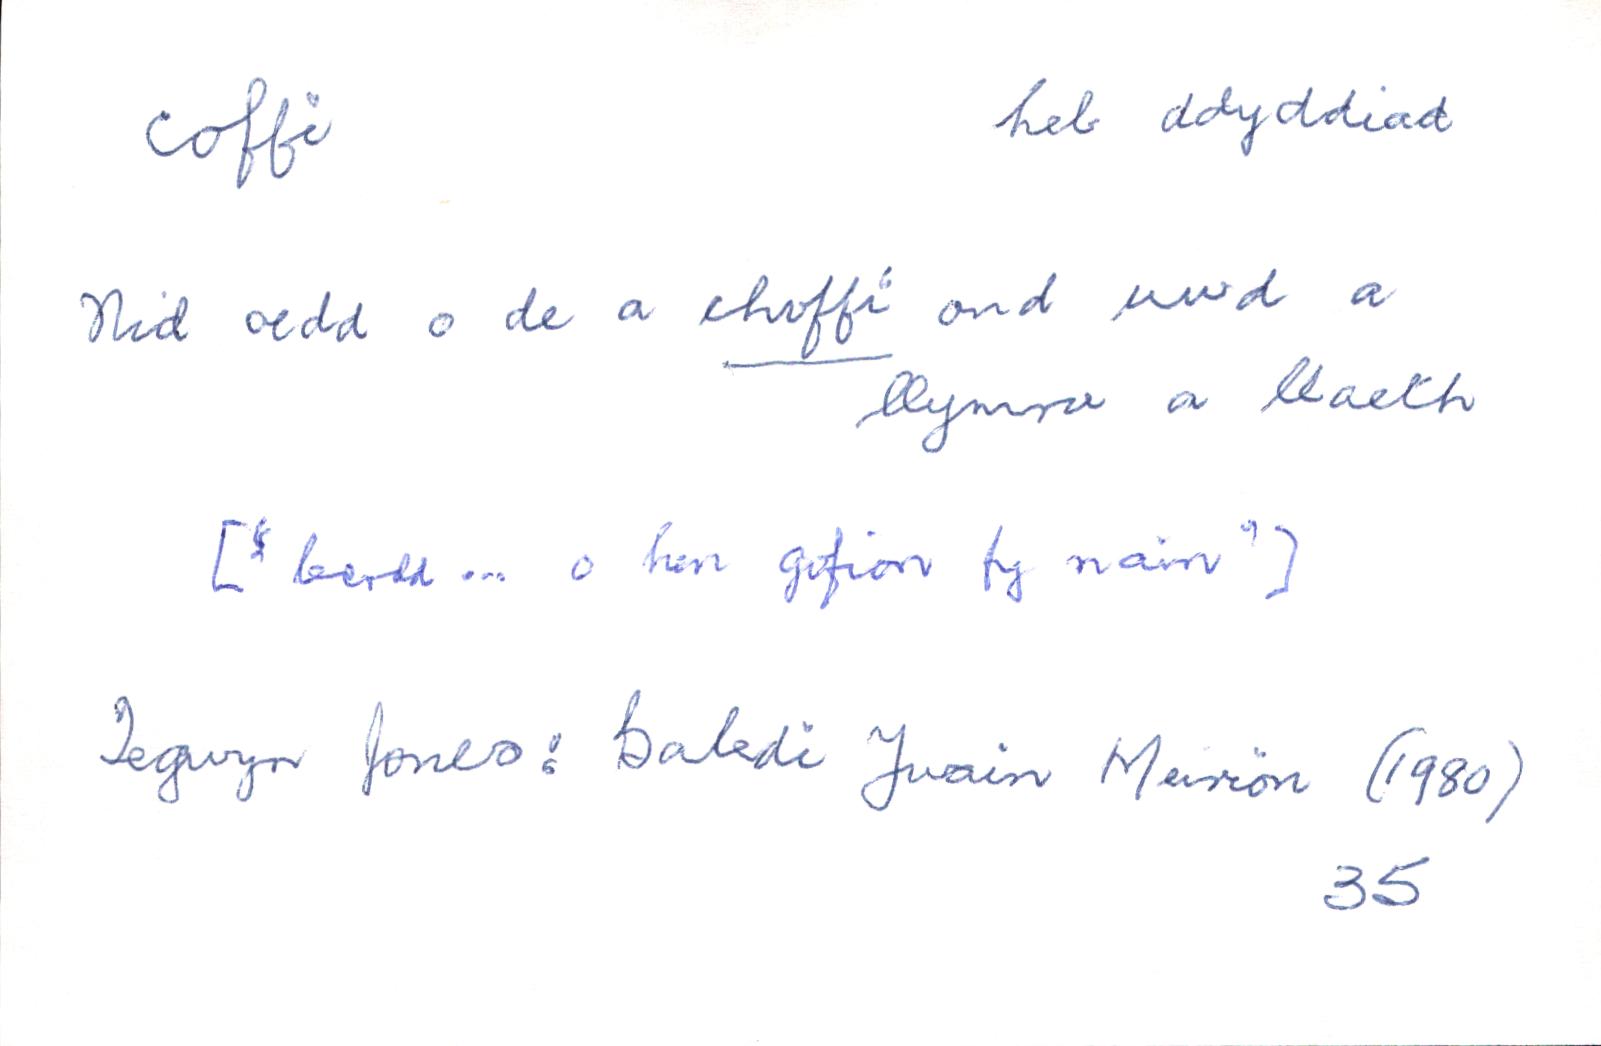 coffi heb ddyddiad
Nid oedd o de a choffi ond uwd a
llymru a llaeth
[" cerdd ... o hen gofion fy nain "]
Tegwyn Jones: Baledi Ywain Meirion (1980)
35